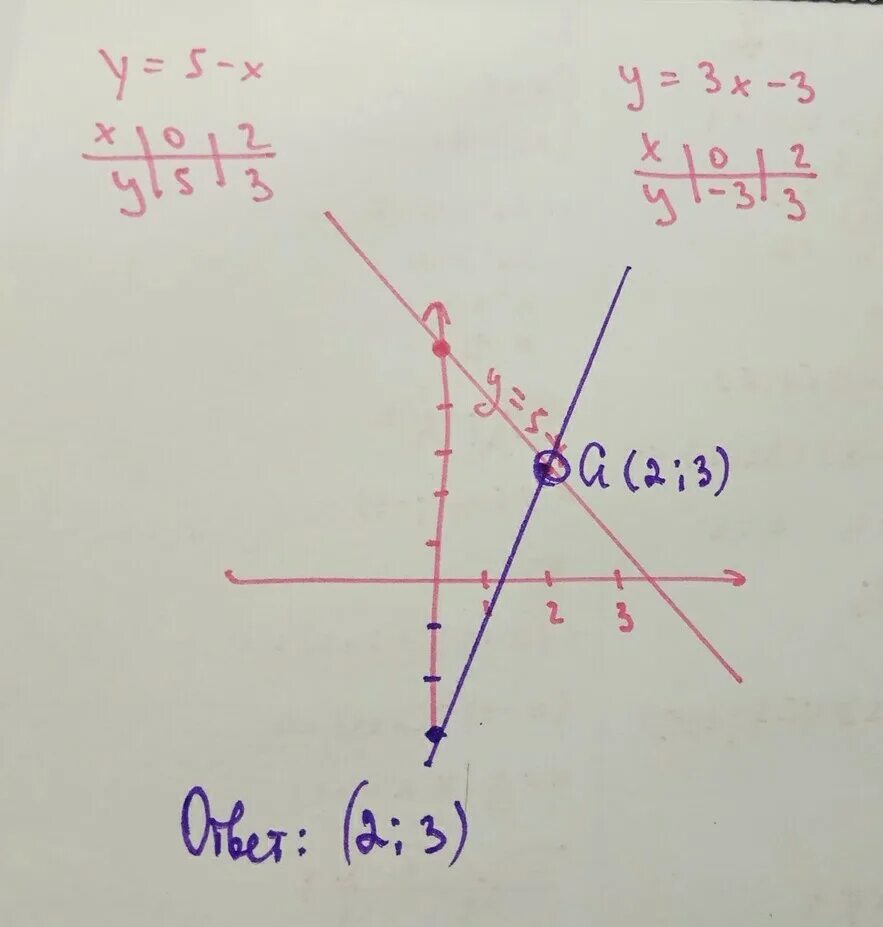 y = 5 - x
x | 0 | 2
y | 5 | 3
y = 3x - 3
x | 0 | 2
y | -3 | 3
y = 5 - x
A (2; 3)
1 2 3
Ответ: (2; 3)